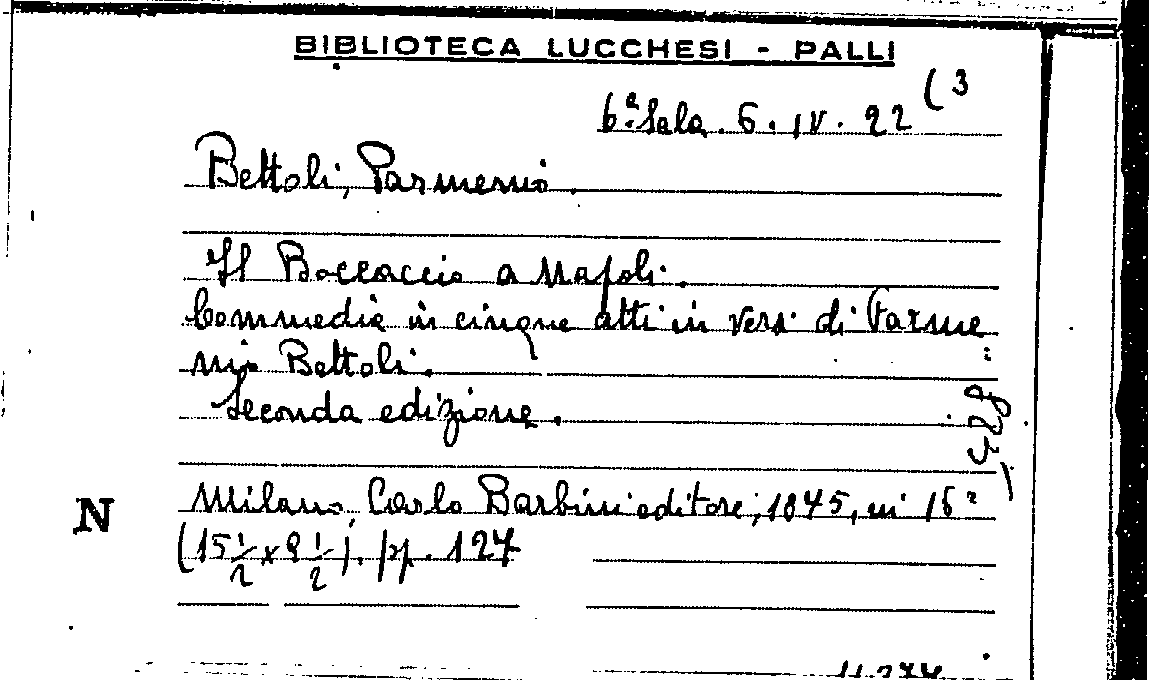 BIBLIOTECA LUCCHESI - PALLI
6ª Sala. 6. IV. 22 (3
Bettoli, Parmenio.
Il Boccaccio a Napoli.
Commedia in cinque atti in versi di Parme
nio Bettoli.
Seconda edizione.
N
Milano, Carlo Barbini editore, 1875, in 16°
(15 1/2 x 9 1/2). pp. 127